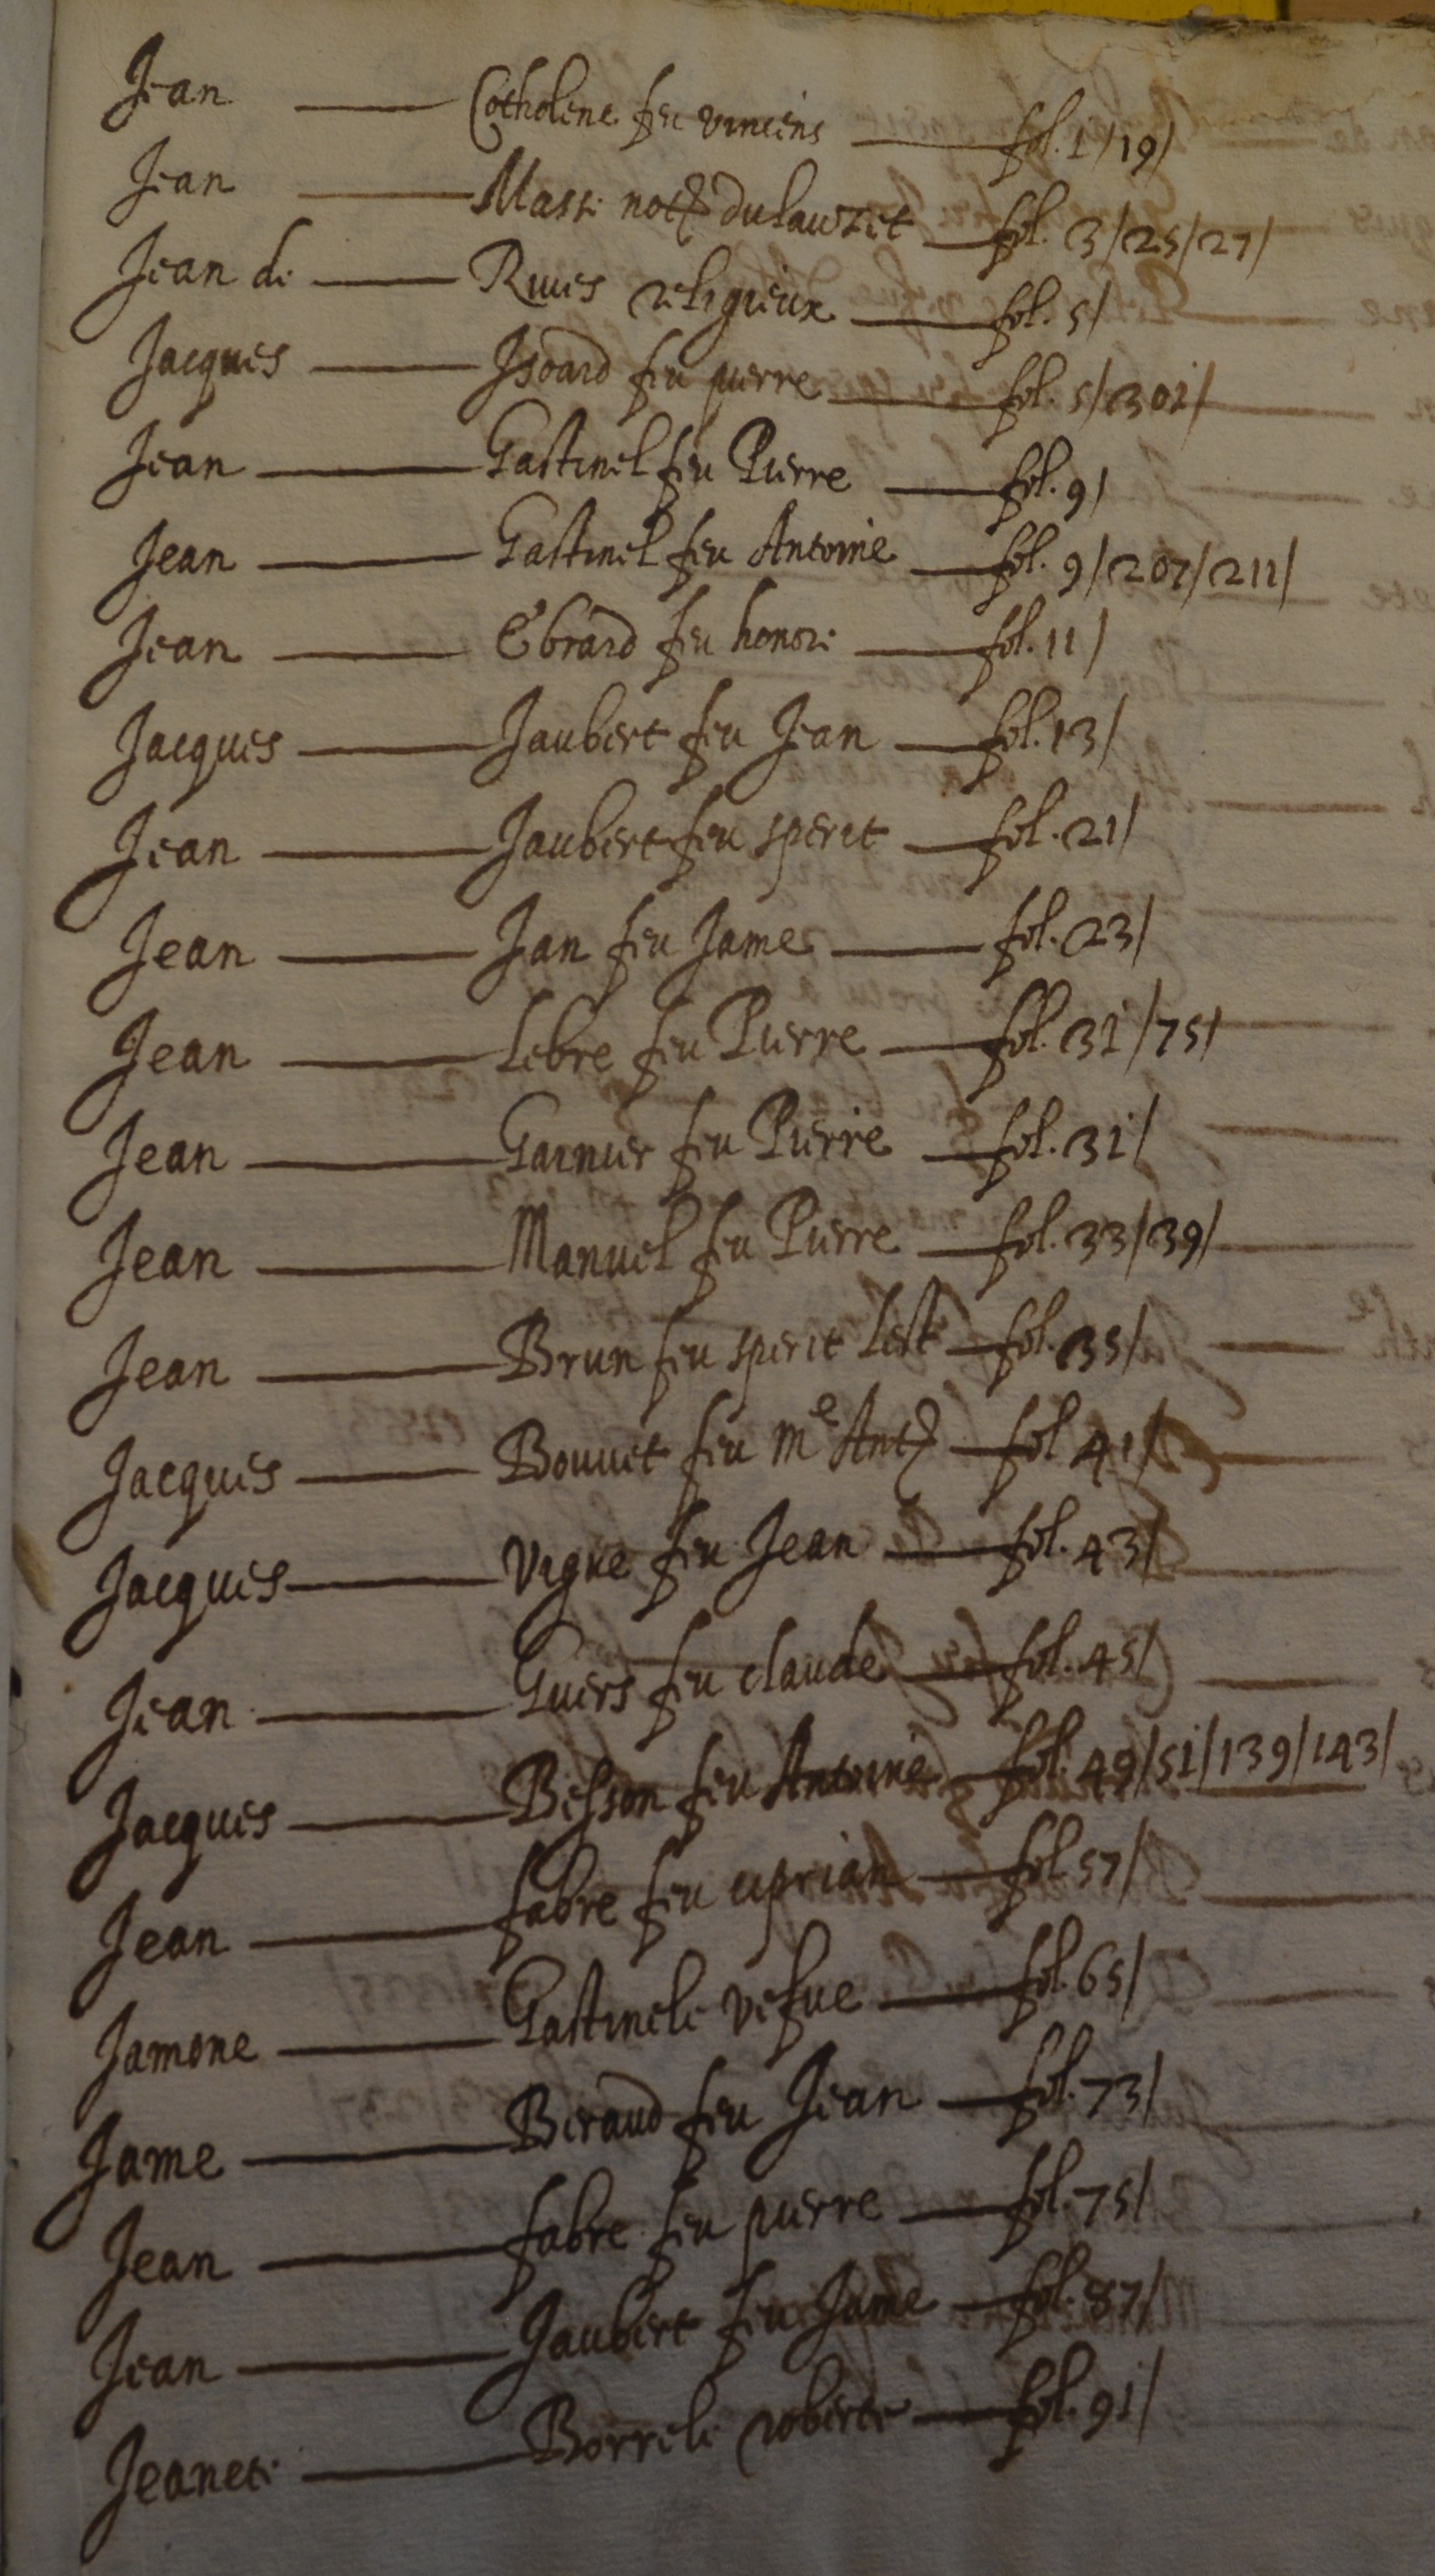 Jean — Cotholene feu vincens — fol. 1/19/
Jean — Masse not. du lauzet — fol. 3/25/27/
Jean de — Riues religieux — fol. 5/
Jacques — Isoard feu pierre — fol. 5/301/
Jean — Gastinel feu Pierre — fol. 9/
Jean — Gastinel feu Antoine — fol. 9/207/211/
Jean — Ebrard feu honore — fol. 11/
Jacques — Jaubert feu Jean — fol. 13/
Jean — Jaubert feu sperit — fol. 21/
Jean — Jan feu Jame — fol. 23/
Jean — Lebre feu Pierre — fol. 31/75/
Jean — Garnier feu Pierre — fol. 31/
Jean — Manuel feu Pierre — fol. 33/39/
Jean — Brun feu sperit — fol. 35/
Jacques — Bouuet feu Me Ant. — fol 41/
Jacques — vigne feu Jean — fol. 43/
Jean — Guers feu claude — fol. 45/
Jacques — Besson feu Antoine — fol. 49/51/139/143/
Jean — fabre feu ciprian — fol 57/
Jamone — Gastinele vefue — fol. 65/
Jame — Beraud feu Jean — fol. 73/
Jean — fabre feu pierre — fol. 75/
Jean — Jaubert feu Jame — fol. 87/
Jeanete — Borrele roberte — fol. 91/